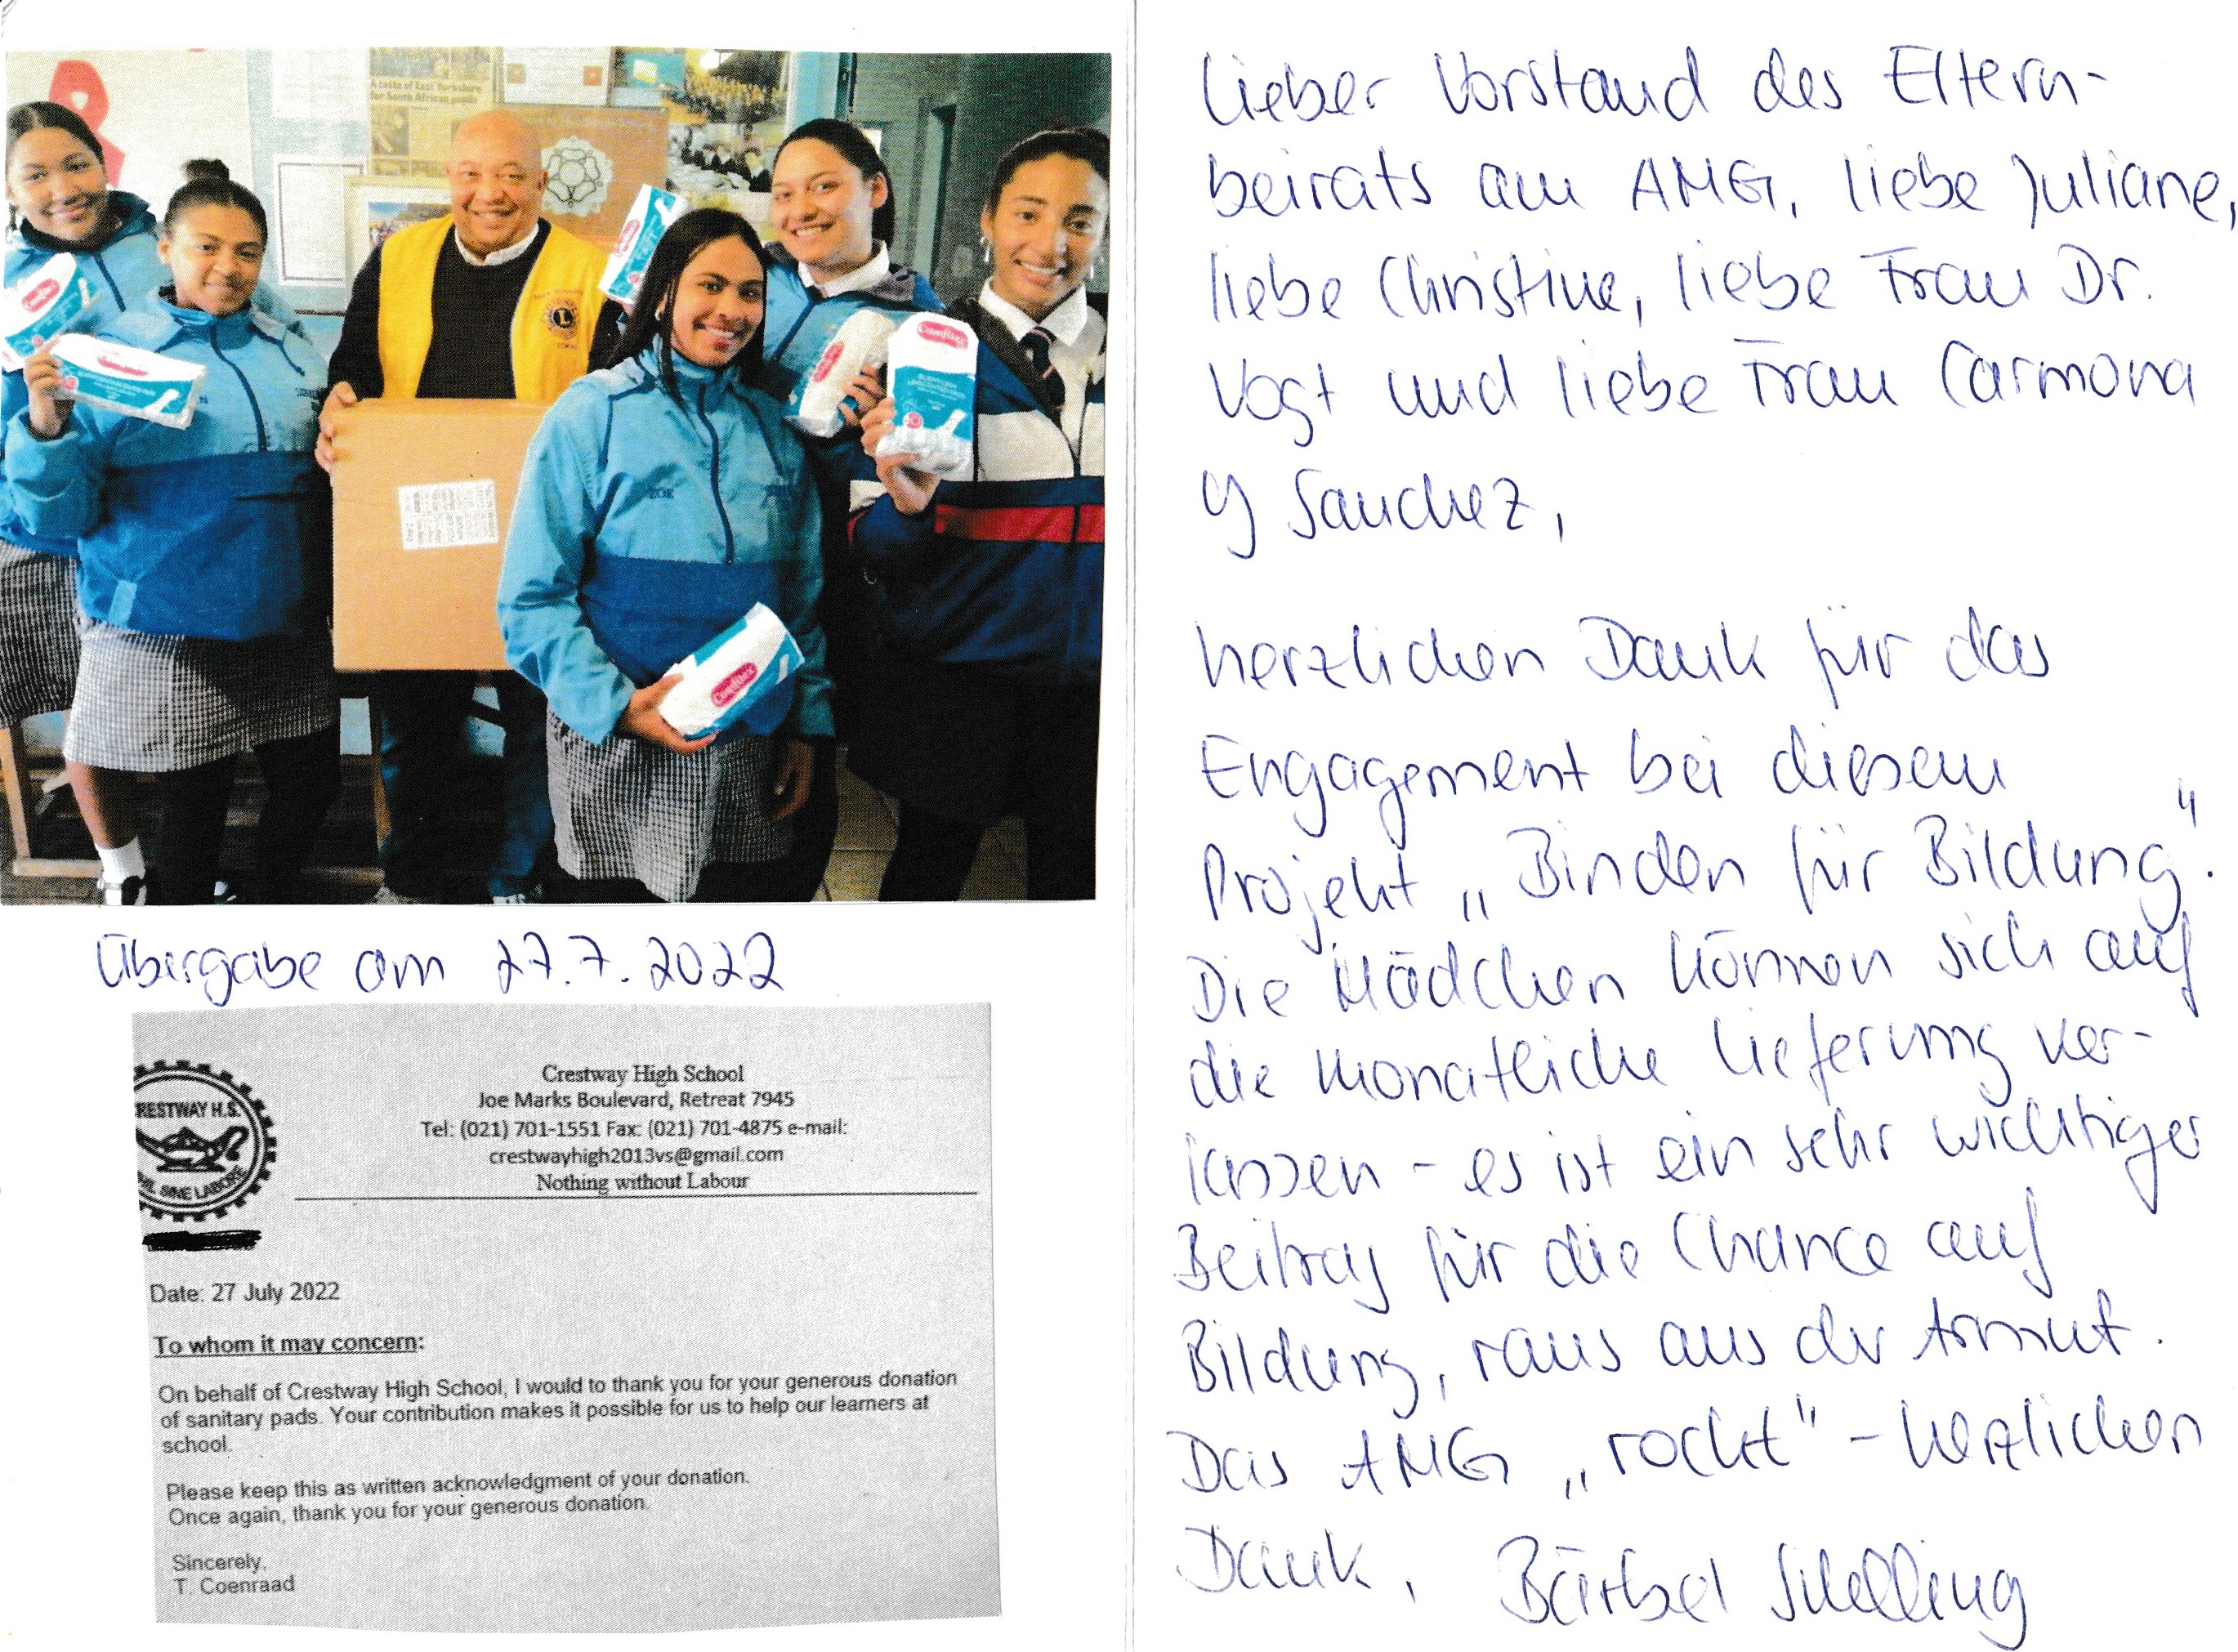 A taste of East Yorkshire
for South African pupils
Comfitex
Comfitex
Comfitex
ZOE
Comfitex
Übergabe am 27.7.2022
RESTWAY H.S.
SINE LABORE
Crestway High School
Joe Marks Boulevard, Retreat 7945
Tel: (021) 701-1551 Fax: (021) 701-4875 e-mail:
crestwayhigh2013vs@gmail.com
Nothing without Labour
Date: 27 July 2022
To whom it may concern:
On behalf of Crestway High School, I would to thank you for your generous donation
of sanitary pads. Your contribution makes it possible for us to help our learners at
school.
Please keep this as written acknowledgment of your donation.
Once again, thank you for your generous donation.
Sincerely,
T. Coenraad
Lieber Vorstand des Eltern-
beirats am AMG, liebe Juliane,
liebe Christine, liebe Frau Dr.
Vogt und liebe Frau Carmona
y Sanchez,
herzlichen Dank für das
Engagement bei diesem
Projekt „Binden für Bildung".
Die Mädchen können sich auf
die monatliche Lieferung ver-
lassen - es ist ein sehr wichtiger
Beitrag für die Chance auf
Bildung, raus aus der Armut.
Das AMG „rockt" - herzlichen
Dank, Bärbel Schelling